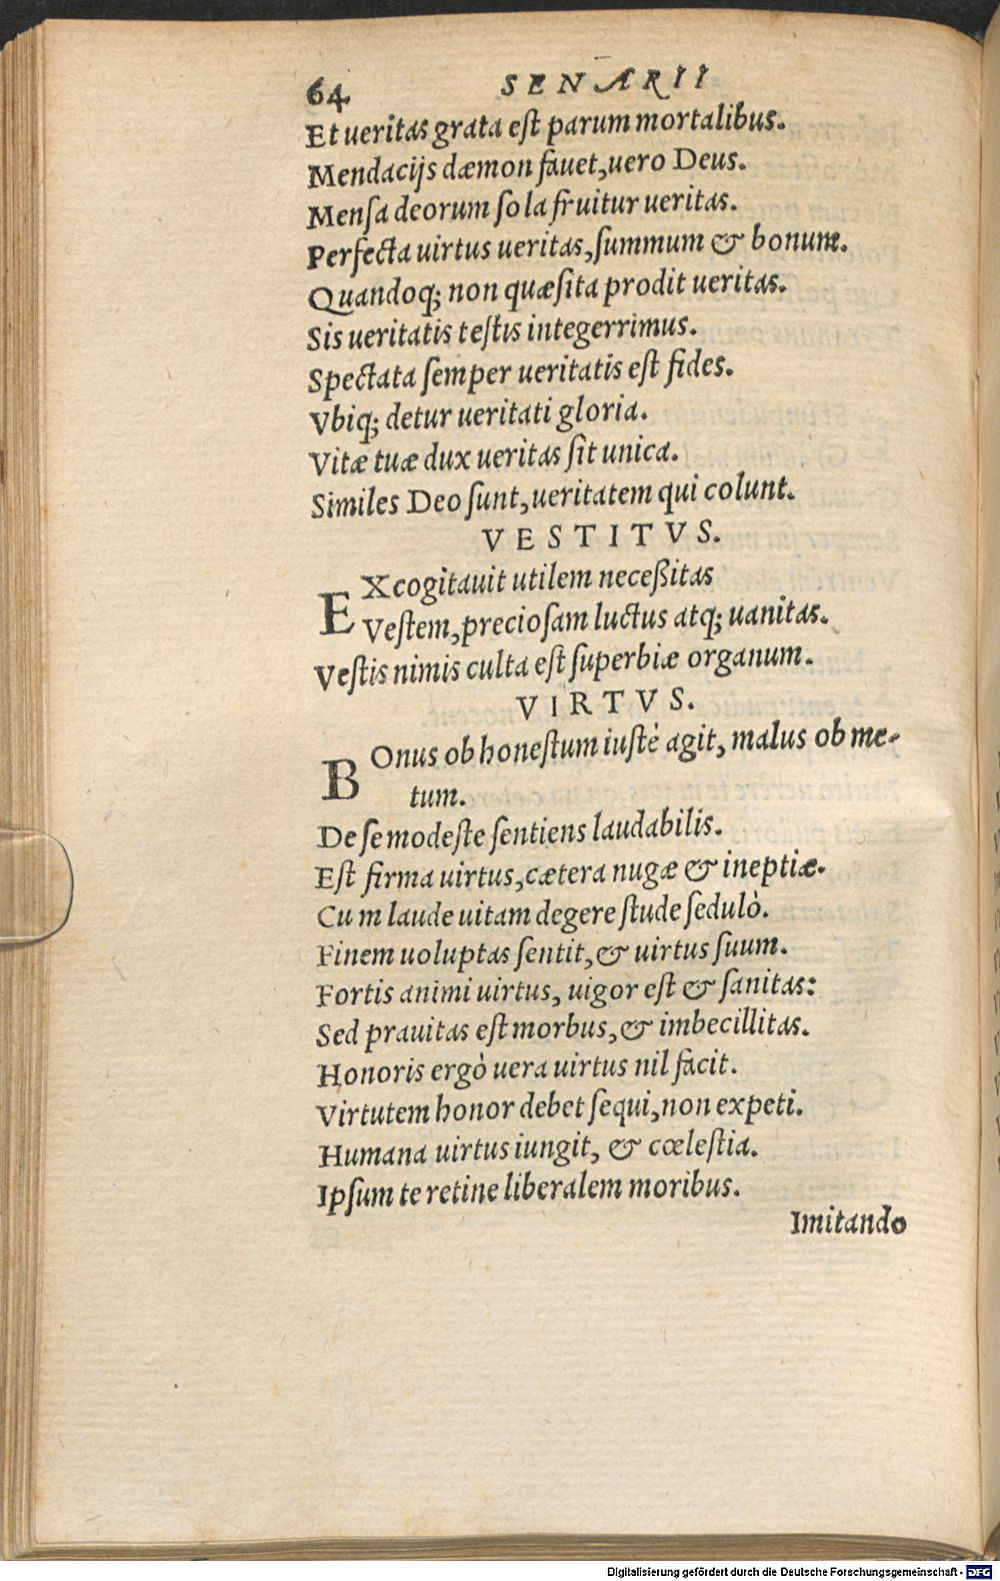 64 SENARII
Et ueritas grata eſt parum mortalibus.
Mendacijs dæmon fauet, uero Deus.
Menſa deorum ſola fruitur ueritas.
Perfecta uirtus ueritas, ſummum & bonum.
Quandoq; non quæſita prodit ueritas.
Sis ueritatis teſtis integerrimus.
Spectata ſemper ueritatis eſt fides.
Vbiq; detur ueritati gloria.
Vitæ tuæ dux ueritas ſit unica.
Similes Deo ſunt, ueritatem qui colunt.
VESTITVS.
EXcogitauit utilem neceßitas
Veſtem, precioſam luctus atq; uanitas.
Veſtis nimis culta eſt ſuperbiæ organum.
VIRTVS.
BOnus ob honeſtum iuſtè agit, malus ob me-
tum.
De ſe modeſte ſentiens laudabilis.
Eſt firma uirtus, cætera nugæ & ineptiæ.
Cum laude uitam degere ſtude ſedulò.
Finem uoluptas ſentit, & uirtus ſuum.
Fortis animi uirtus, uigor eſt & ſanitas:
Sed prauitas eſt morbus, & imbecillitas.
Honoris ergò uera uirtus nil facit.
Virtutem honor debet ſequi, non expeti.
Humana uirtus iungit, & cœleſtia.
Ipſum te retine liberalem moribus.
Imitando
Digitalisierung gefördert durch die Deutsche Forschungsgemeinschaft - DFG